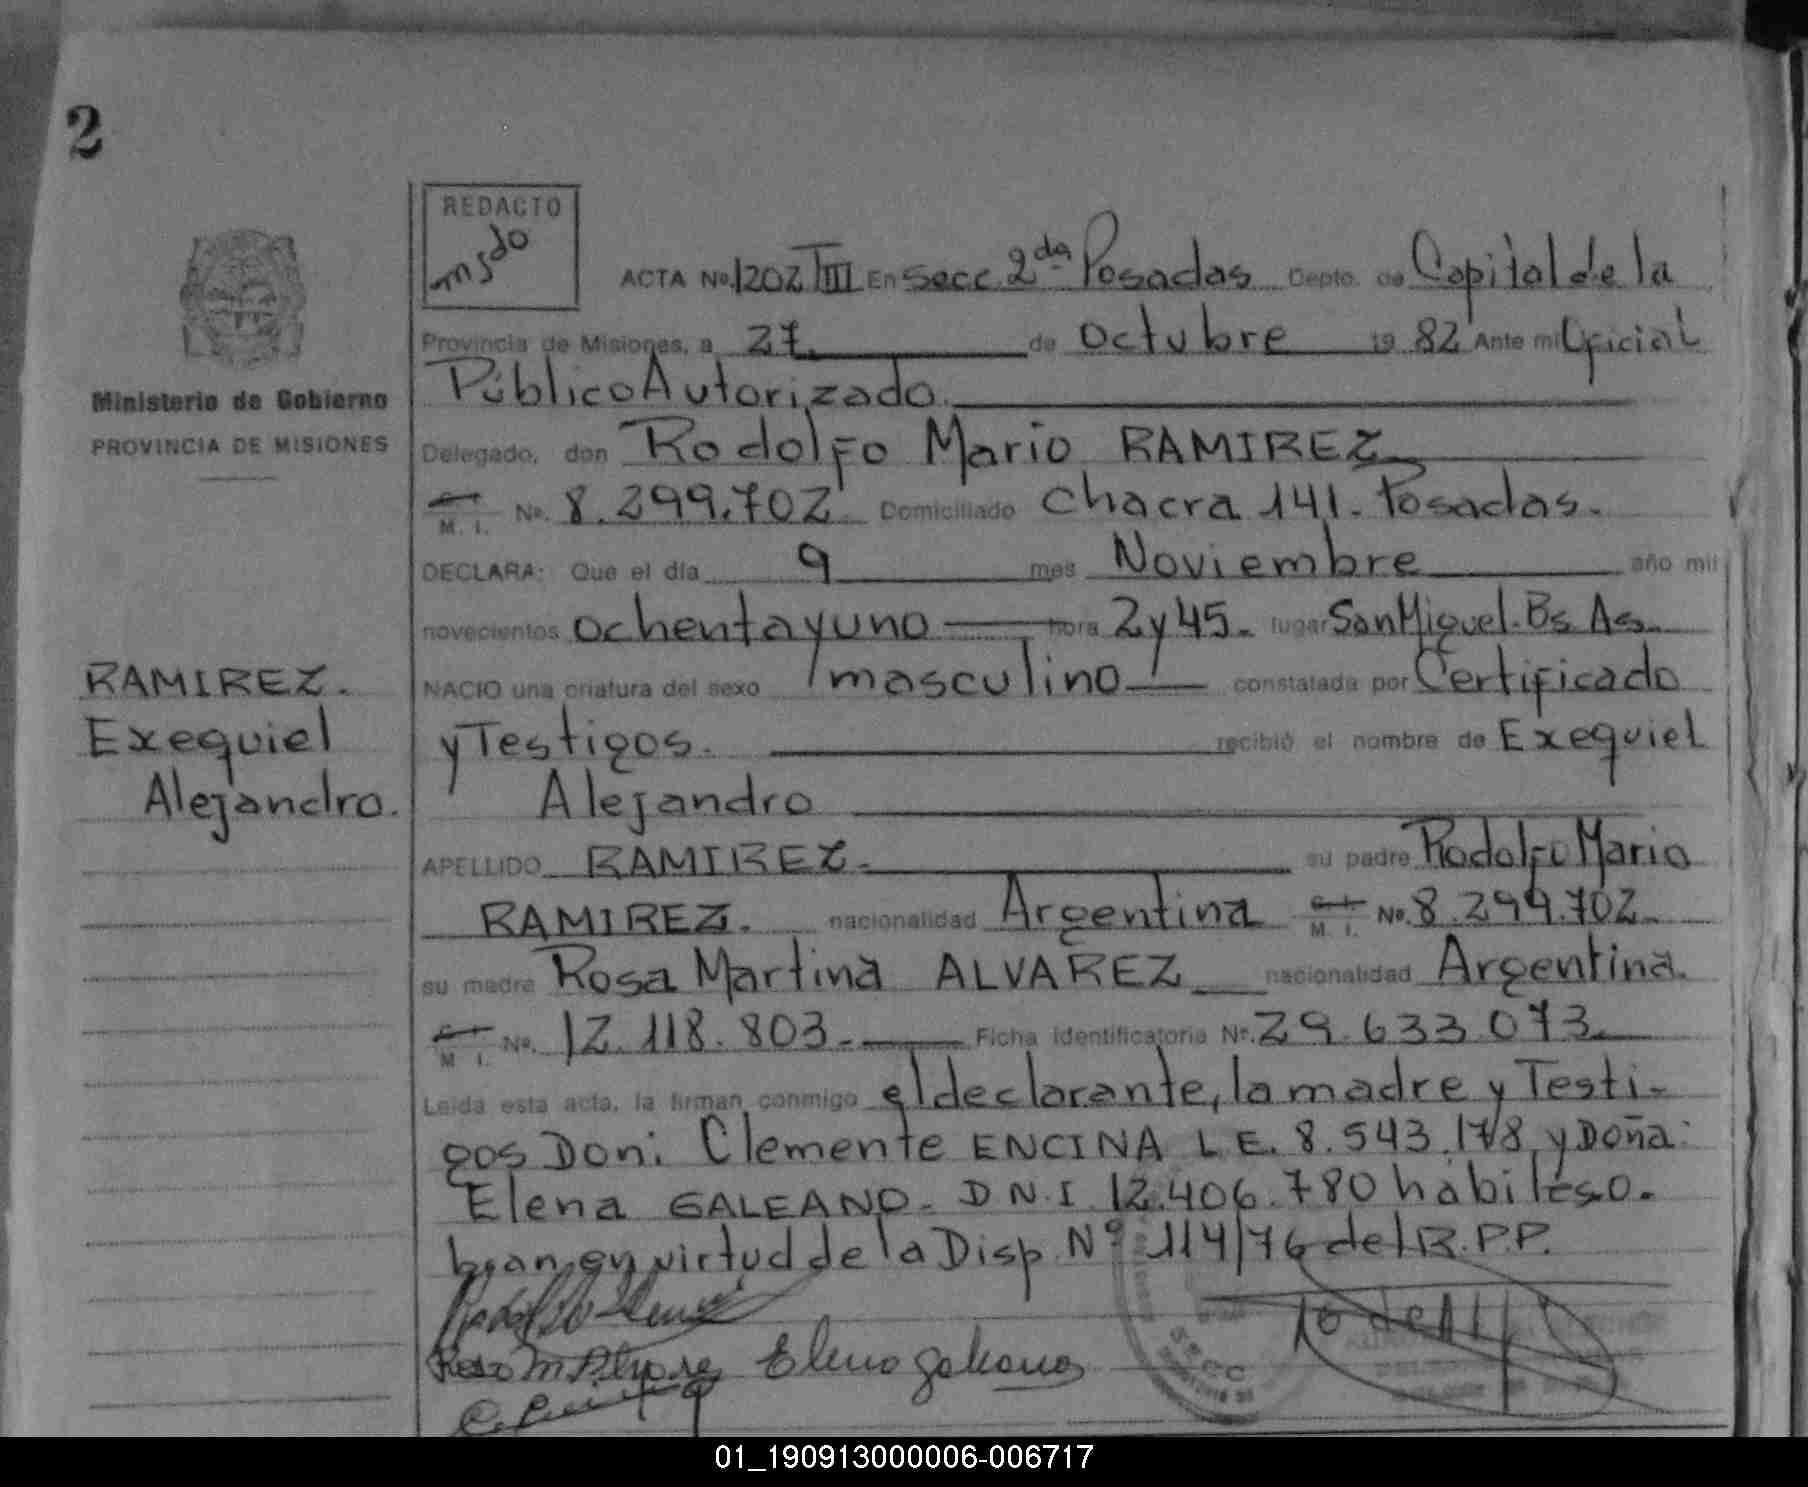 2
REDACTO
ACTA No. 1202 TIII En Secc. 2da Posadas Depto. de Capital de la
Provincia de Misiones, a 27 de Octubre 1982 Ante mi Oficial
Público Autorizado.
Ministerio de Gobierno
PROVINCIA DE MISIONES
Delegado, don Rodolfo Mario RAMIREZ
M. I. No. 8.299.702 Domiciliado Chacra 141. Posadas.
DECLARA: Que el día 9 mes Noviembre año mil
novecientos ochenta y uno hora 2 y 45. lugar San Miguel. Bs As.
RAMIREZ.
Exequiel
Alejandro.
NACIO una criatura del sexo masculino constatada por Certificado
y Testigos. recibió el nombre de Exequiel
Alejandro
APELLIDO RAMIREZ. su padre Rodolfo Mario
RAMIREZ. nacionalidad Argentina M. I. No. 8.299.702.
su madre Rosa Martina ALVAREZ nacionalidad Argentina.
M. I. No. 12.118.803. Ficha identificatoria Nr. 29.633.073.
Leída esta acta, la firman conmigo el declarante, la madre y Testi-
gos Don: Clemente ENCINA L.E. 8.543.178 y Doña:
Elena GALEANO. D.N.I. 12.406.780 hábiles. O.
bran en virtud de la Disp. Nº 114/76 del R.P.P.
Elena Galeano
01_190913000006-006717